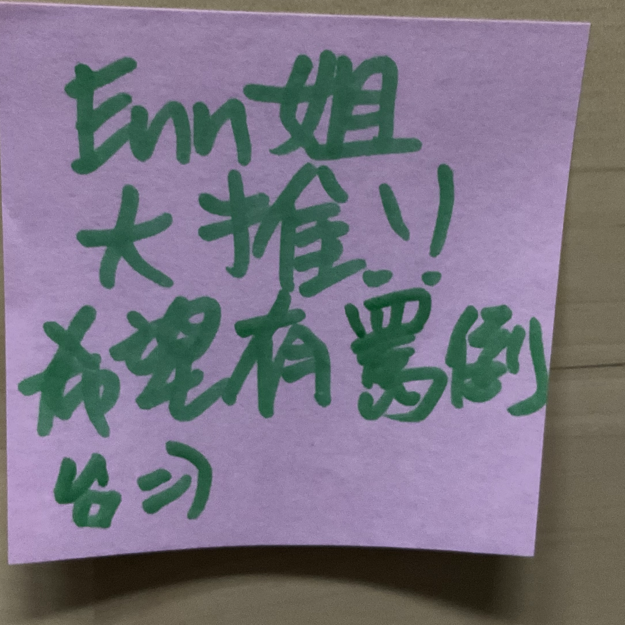 Enn姐
大推!!
希望有罵倒
台=))